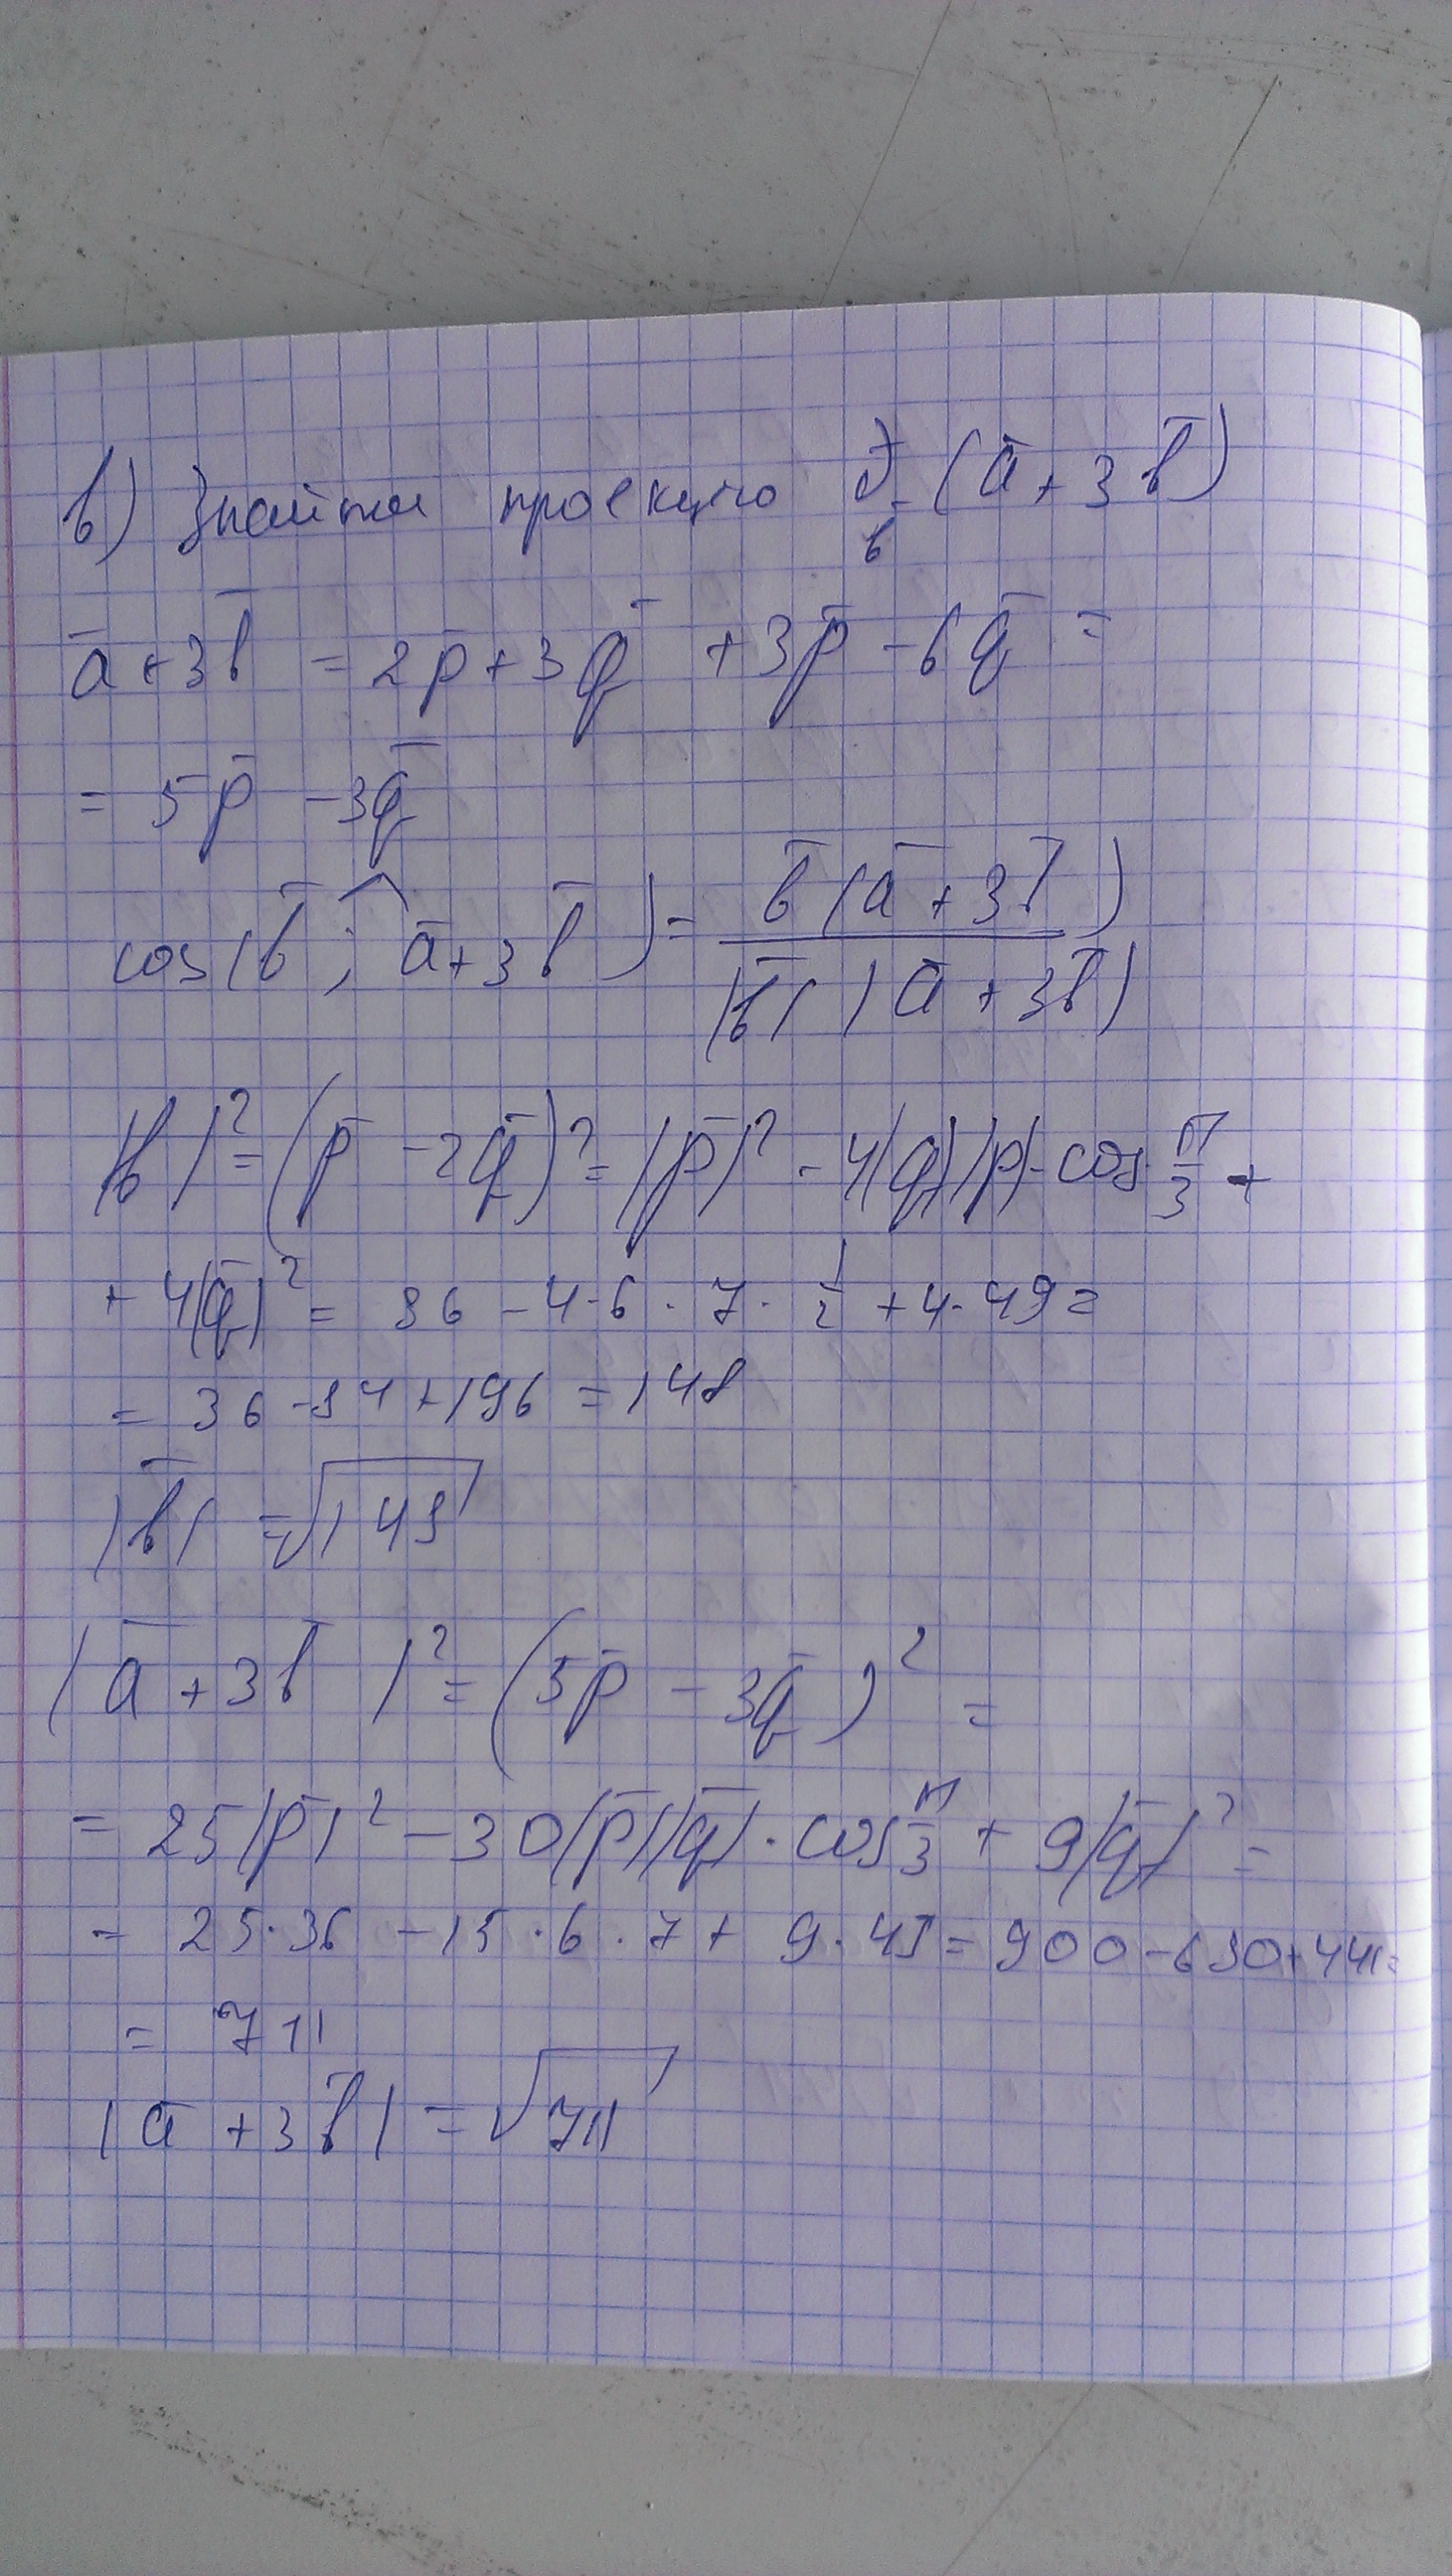 в) Знайти проекцію в̄ (ā + 3в̄)
ā + 3в̄ = 2p̄ + 3q̄ + 3p̄ - 6q̄ =
= 5p̄ - 3q̄
cos(в̄ ; ā + 3в̄) = в̄(ā + 3в̄) / |в̄| |ā + 3в̄|
|в̄|² = (p̄ - 2q̄)² = |p̄|² - 4|q̄||p̄| · cos π/3 +
+ 4|q̄|² = 36 - 4·6·7·1/2 + 4·49 =
= 36 - 84 + 196 = 148
|в̄| = √148
|ā + 3в̄|² = (5p̄ - 3q̄)² =
= 25|p̄|² - 30|p̄||q̄| · cos π/3 + 9|q̄|² =
= 25·36 - 15·6·7 + 9·49 = 900 - 630 + 441 =
= 711
|ā + 3в̄| = √711